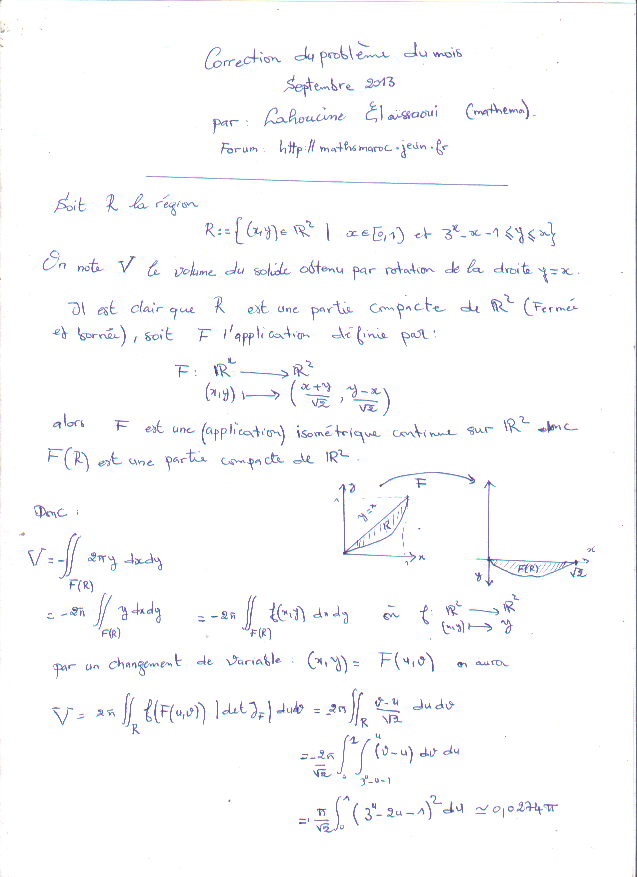 Correction du problème du mois
Septembre 2013
par : Lahoucine Elaissaoui (mathema).
Forum : http://mathsmaroc.jeun.fr
Soit R la région
R := {(x,y) ∈ ℝ² | x ∈ [0,1) et 3^x - x - 1 ≤ y ≤ x}
On note V le volume du solide obtenu par rotation de la droite y = x.
Il est clair que R est une partie compacte de ℝ² (Fermée
et bornée), soit F l'application définie par :
F : ℝ² → ℝ²
(x,y) ↦ ((x+y)/√2, (y-x)/√2)
alors F est une (application) isométrique continue sur ℝ² donc
F(R) est une partie compacte de ℝ².
Donc :
y
1
y = x
R
1
x
F
x
y
F(R)
√2
V = -∬_{F(R)} 2πy dxdy
= -2π ∬_{F(R)} y dxdy = -2π ∬_{F(R)} f(x,y) dxdy où f : ℝ² → ℝ
(x,y) ↦ y
par un changement de variable : (x,y) = F(u,v) on aura
V = 2π ∬_R f(F(u,v)) |det J_F| dudv = -2π ∬_R (v-u)/√2 du dv
= -2π/√2 ∫_0^1 ∫_{3^u-u-1}^u (v-u) dv du
= π/√2 ∫_0^1 (3^u - 2u - 1)² du ≃ 0,0274π